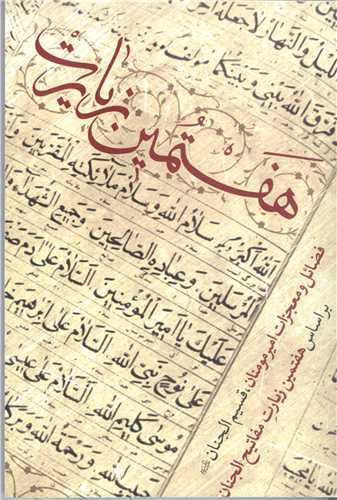 هفتمین زیارت
فضائل و معجزات امیرمومنان، قسیم الجنان
بر اساس هفتمین زیارت مفاتیح الجنان
اللیل والنهار
فرق الله بینی و بینکما
الله أکبر سلام الله وسلام ملائکته المقربین
المرسلین وعباده الصالحین وجمیع الشهداء
علیک یا امیر المومنین السلام علی ادم صفوة
علی نوح نبی الله السلام علی ابرهیم
موسی کلیم الله السلام علی عیسی
حبیب الله ورحمة الله وبرکا